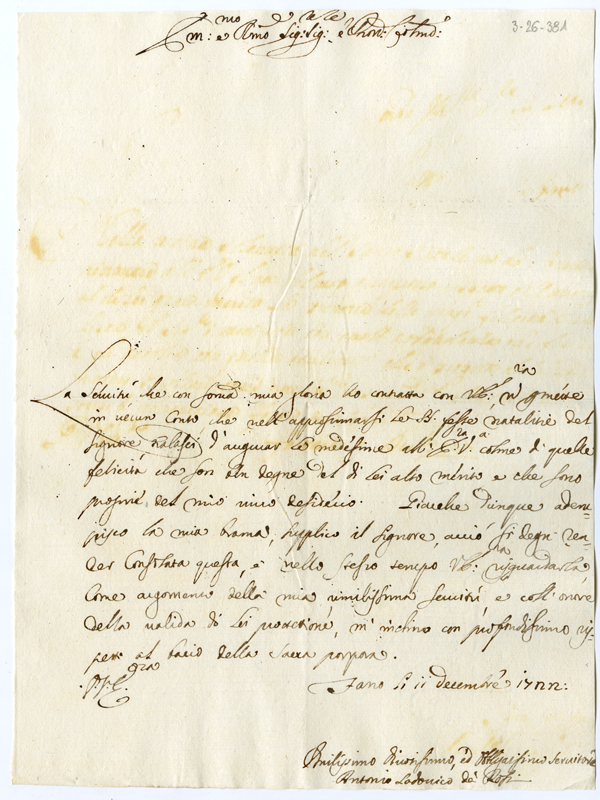 3-26-381
Em:mo e Rmo Sig: Sig: e Pron: Colmo:
La Servitù che con somma mia gloria ho contratta con V.E. non permette
in verun conto, che nell'approssimarsi le SS. feste natalizie del
Signore tralasci d'augurar le medesime all' E.V. colme di quelle
felicità che son ben degne del di Lei alto merito e che sono
proprie del mio vivo desiderio. Piacche dunque adem-
pisco la mia brama, supplico il Signore, acciò si degni ren-
der consolata questa, e nello stesso tempo V.E. risguardarla
come argomento della mia umilissima servitù, e coll' onore
della valida di Lei protetione, m'inchino con profondissimo ris-
petto al bacio della Sacra porpora.
Fano li 11 decembre 1722:
Umilissimo Divotissimo, ed Obligatissimo Servitore
Antonio Lodovico de Rossi